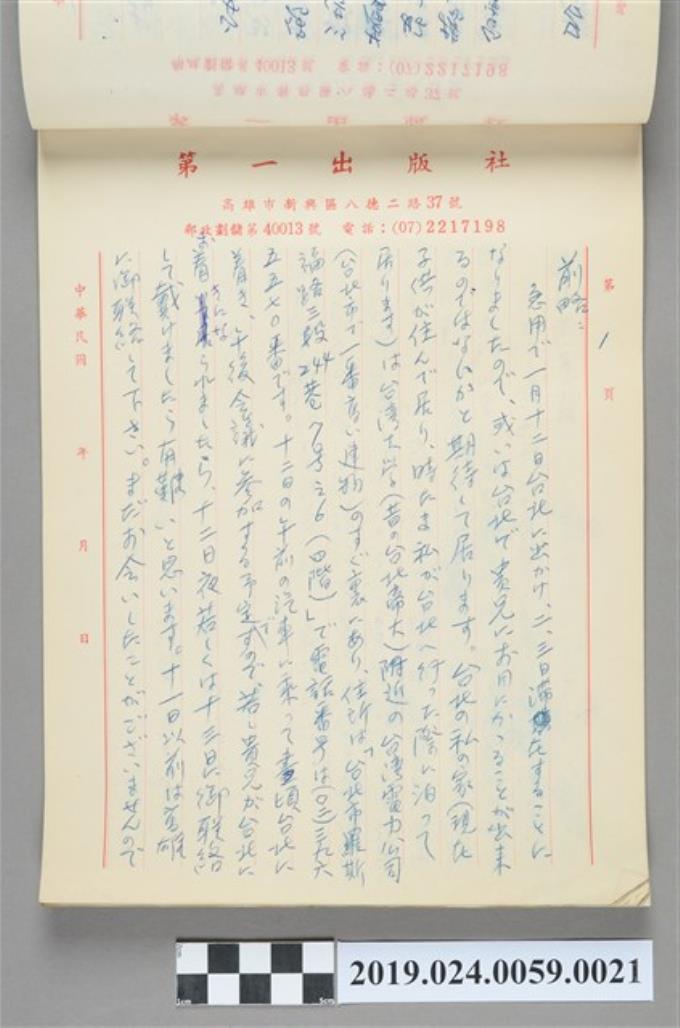 第一出版社
高雄市新興區八德二路37號
郵政劃儲第40013號 電話：(07)2217198
第1頁
前略：
急用で一月十二日台北に出かけ、二、三日滞在することに
なりましたので、或いは台北で貴兄にお目にかゝることが出来
るのではないかと期待して居ります。台北の私の家（現在
子供が住んで居り、時たま私が台北へ行った際に泊って
居ります）は台湾大学（昔の台北帝大）附近の台湾電力公司
（台北市で一番高い建物）のすぐ裏にあり、住所は「台北市羅斯
福路三段244巷 号之6（四階）」で電話番号は(〇二)三九六
五五七〇番です。十二日の午前の汽車に乗って昼頃台北に
着き、午後会議に参加する予定ですので、若し貴兄が台北に
お着きになられましたら、十二日夜若しくは十三日に御聯絡
して戴けましたら有難いと思います。十一日以前は高雄
に御聯絡して下さい。まだお会いしたことがございませんので
中華民國 年 月 日
2019.024.0059.0021